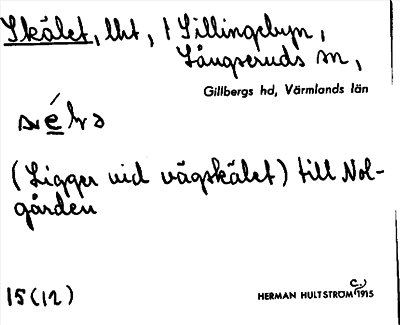 Skälet, lht, i Sillingebyn,
Långseruds sn,
Gillbergs hd, Värmlands län
(Ligger vid vägskälet) till Nol-
gården
15(12)
HERMAN HULTSTRÖM C.) 1915